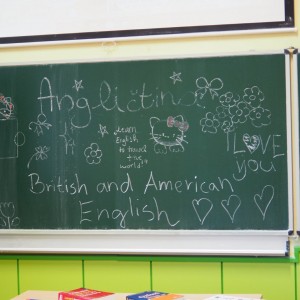 Angličtina
Learn
English
to travel
the
world!
I LOVE
you
British and American
English